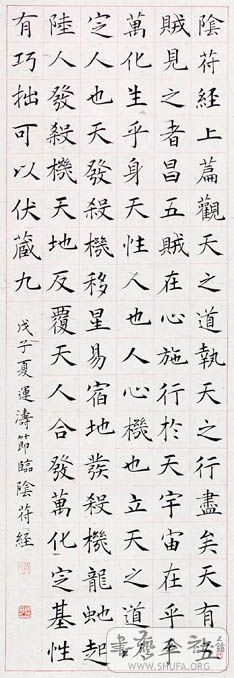 陰苻經上篇觀天之道執天之行盡矣天有五
賊見之者昌五賊在心施行於天宇宙在乎手
萬化生乎身天性人也人心機也立天之道以
定人也天發殺機移星易宿地發殺機龍虵起
陸人發殺機天地反覆天人合發萬化定基性
有巧拙可以伏藏九
戊子夏運濤節臨陰苻經
WWW.SHUFA.ORG